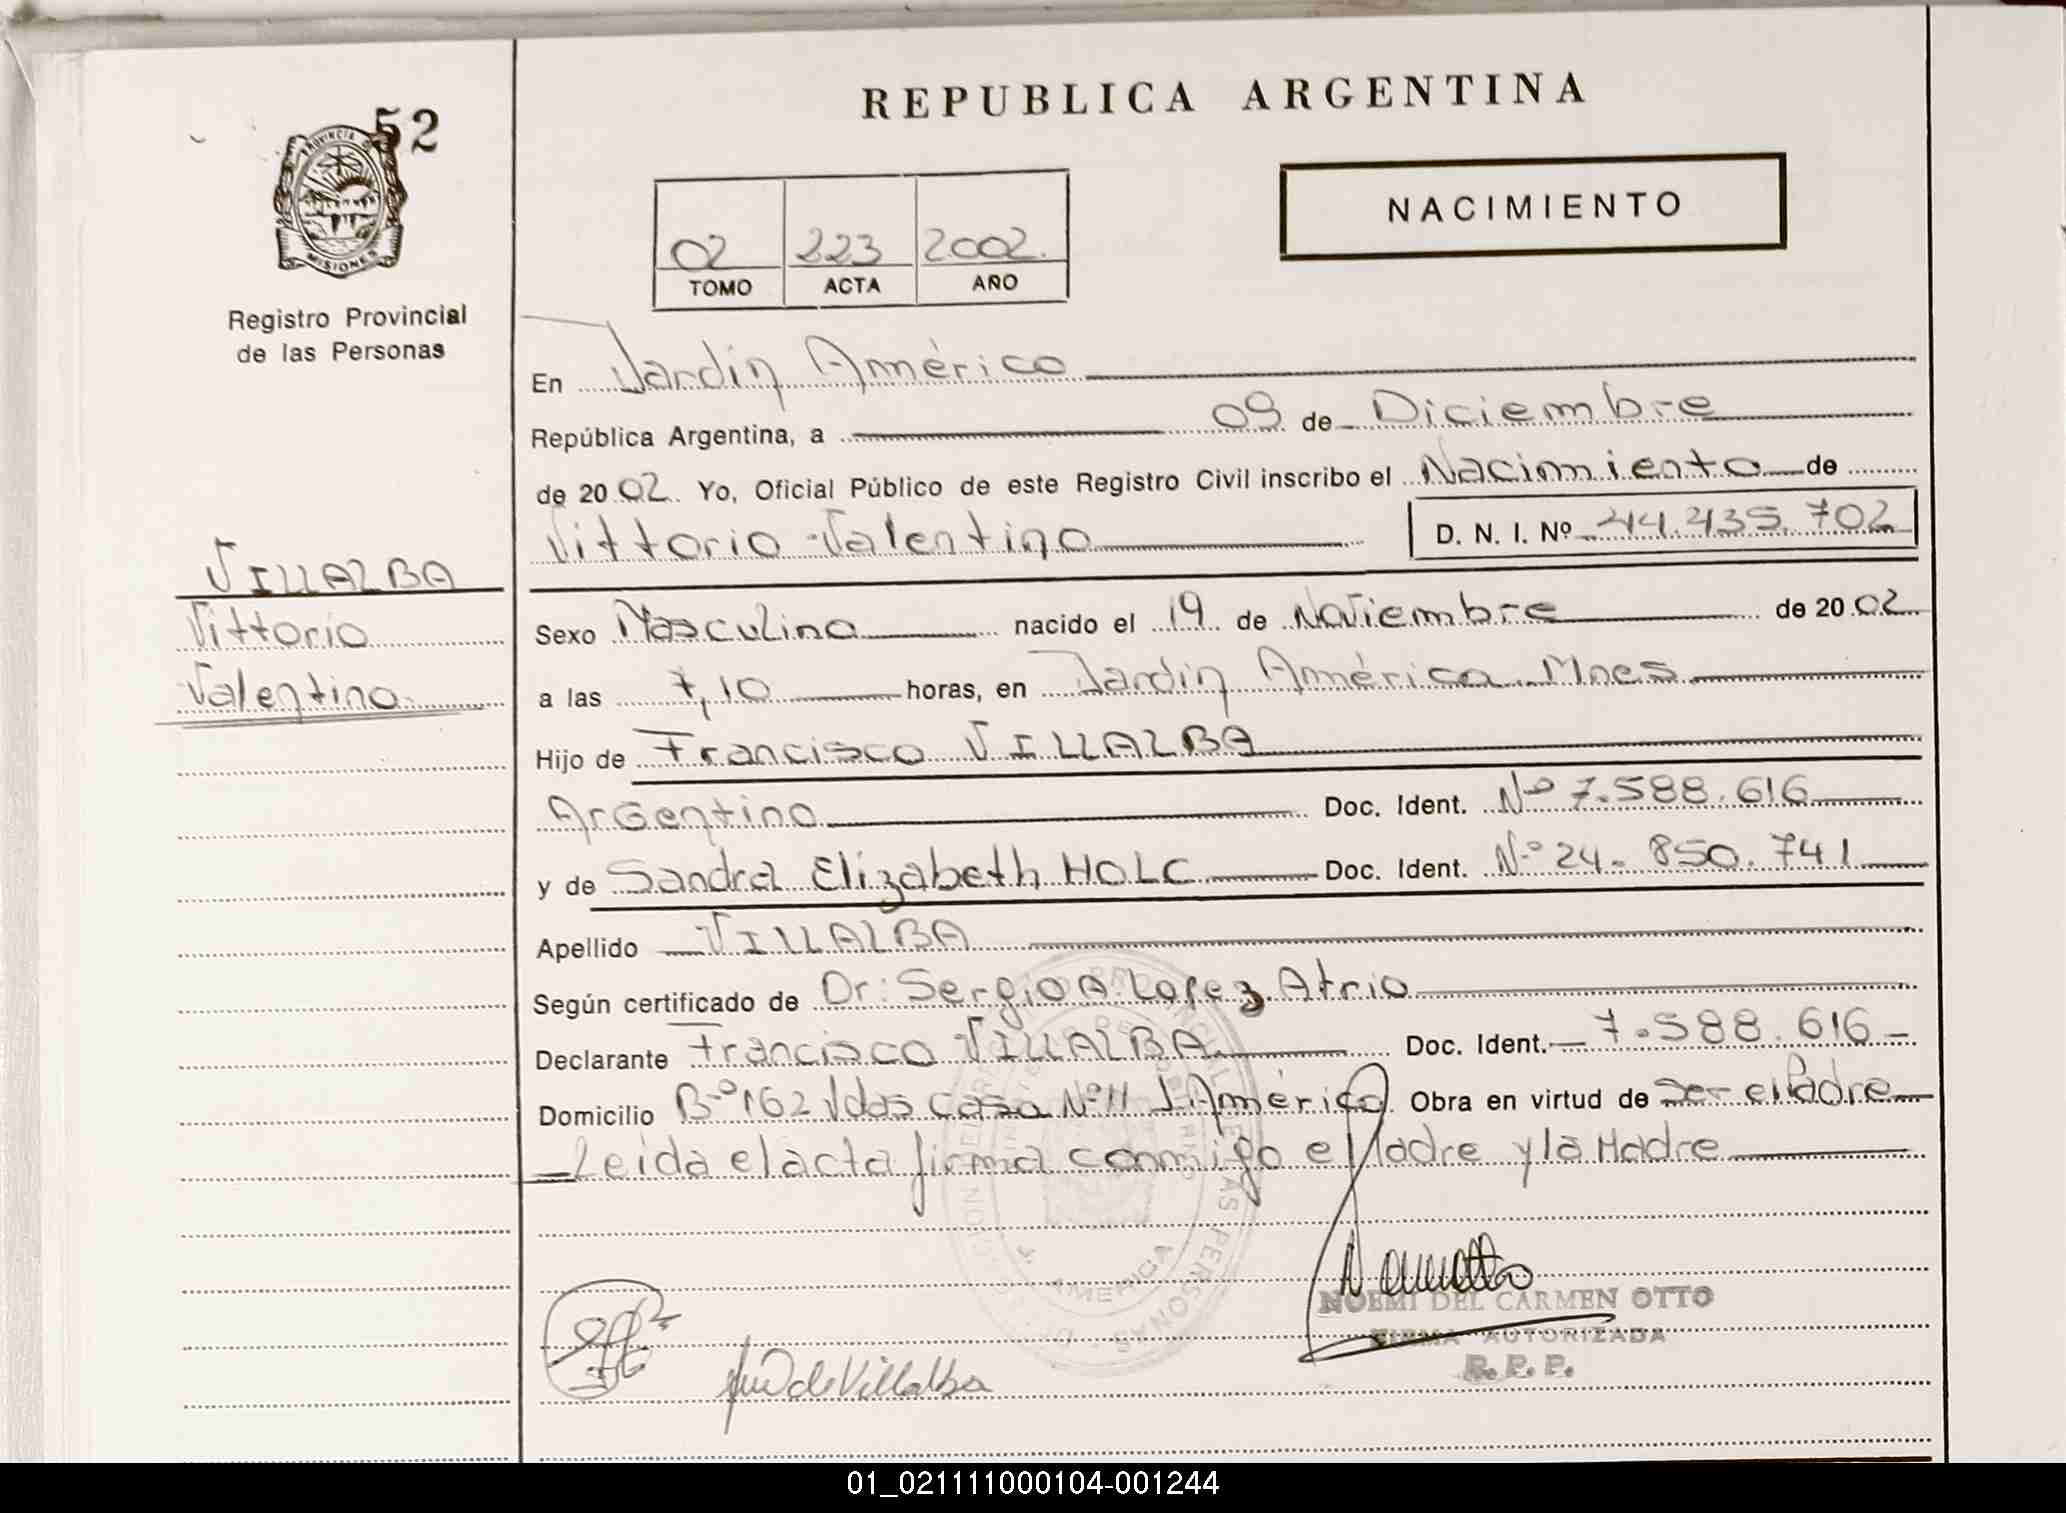 52
PROVINCIA DE
MISIONES
Registro Provincial
de las Personas
VILLALBA
Vittorio
Valentino
REPUBLICA ARGENTINA
02 223 2002.
TOMO ACTA AÑO
NACIMIENTO
En Jardín América
República Argentina, a 09 de Diciembre
de 2002. Yo, Oficial Público de este Registro Civil inscribo el Nacimiento de
Vittorio Valentino D. N. I. Nº 44.435.702
Sexo Masculino nacido el 19 de Noviembre de 2002
a las 7,10 horas, en Jardín América Mnes
Hijo de Francisco VILLALBA
Argentino Doc. Ident. Nº 7.588.616
y de Sandra Elizabeth HOLC Doc. Ident. Nº 24.850.741
Apellido VILLALBA
Según certificado de Dr: Sergio A. Lopez Atrio
Declarante Francisco VILLALBA Doc. Ident. 7.588.616
Domicilio Bº 162 Vdas Casa Nº 11 J. América Obra en virtud de ser el Padre
Leída el acta firma conmigo el Padre y la Madre
de Villalba
NOEMI DEL CARMEN OTTO
FIRMA AUTORIZADA
R. P. P.
01_021111000104-001244